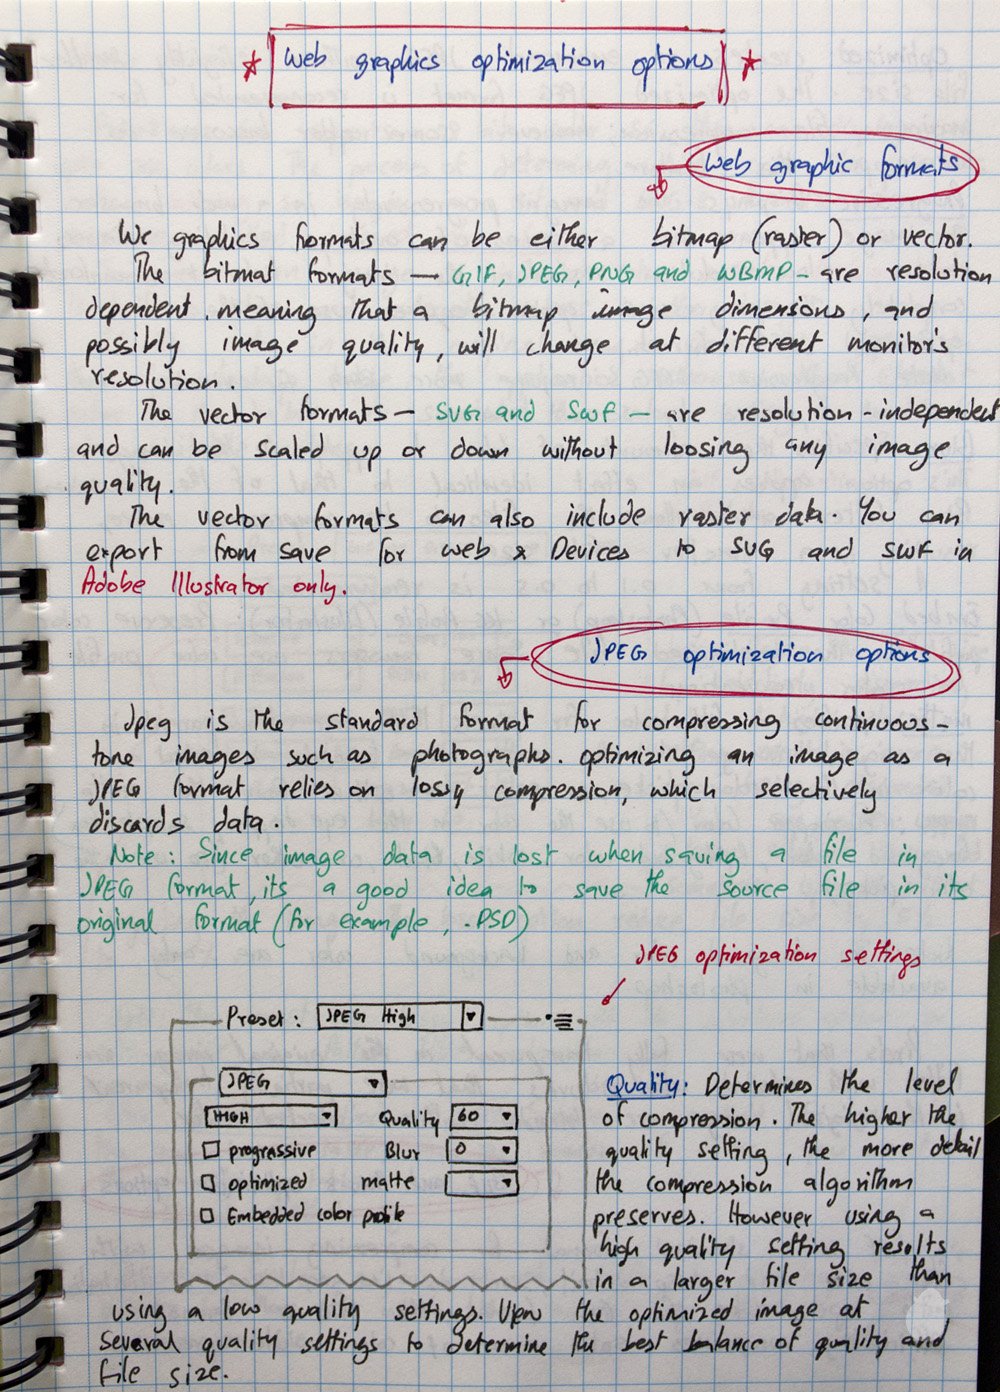 * Web graphics optimization options *
Web graphic formats
We graphics formats can be either bitmap (raster) or vector.
The bitmat formats — GIF, JPEG, PNG and WBMP - are resolution
dependent, meaning that a bitmap image dimensions, and
possibly image quality, will change at different monitor's
resolution.
The vector formats — SVG and SWF — are resolution - independent
and can be scaled up or down without loosing any image
quality.
The vector formats can also include raster data. You can
export from save for web & Devices to SVG and SWF in
Adobe Illustrator only.
JPEG optimization options
Jpeg is the standard format for compressing continuous-
tone images such as photographs. optimizing an image as a
JPEG format relies on lossy compression, which selectively
discards data.
Note: Since image data is lost when saving a file in
JPEG format, its a good idea to save the source file in its
original format (for example, .PSD)
JPEG optimization settings
Preset: JPEG High
JPEG
HIGH Quality 60
progressive Blur 0
optimized matte
Embedded color profile
Quality: Determines the level
of compression. The higher the
quality setting, the more detail
the compression algorithm
preserves. However using a
high quality setting results
in a larger file size than
using a low quality settings. View the optimized image at
several quality settings to determine the best balance of quality and
file size.